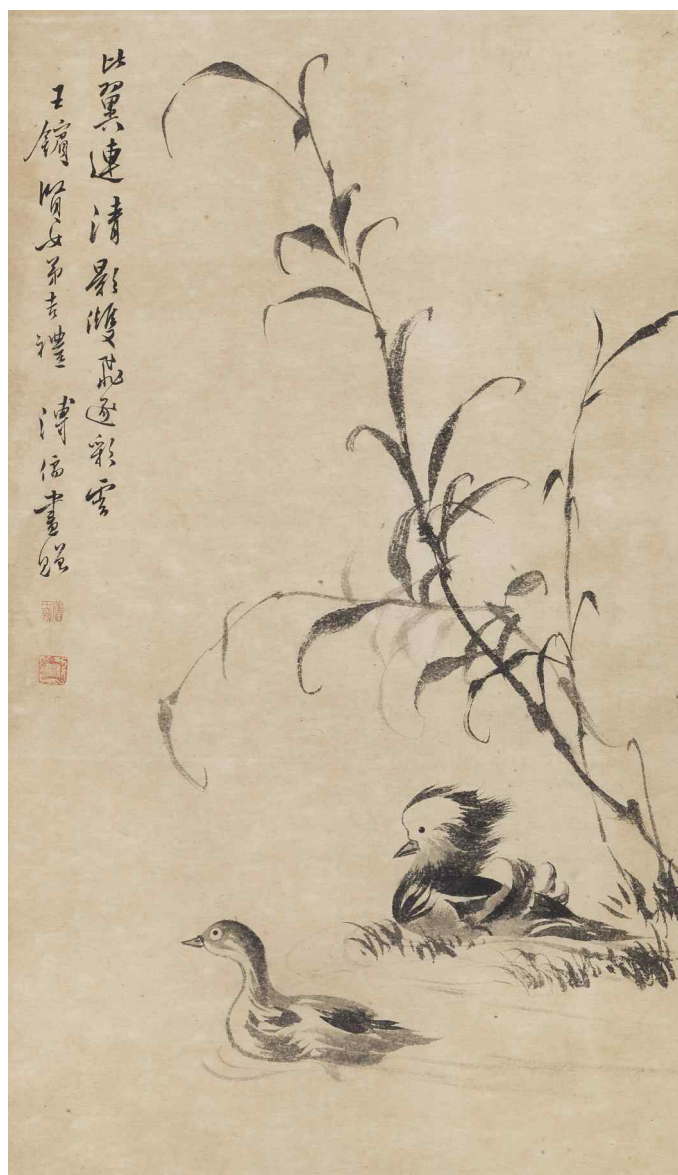 比翼連清影雙飛逐彩雲
王鑌賢女弟吉禮 溥儒畫贈